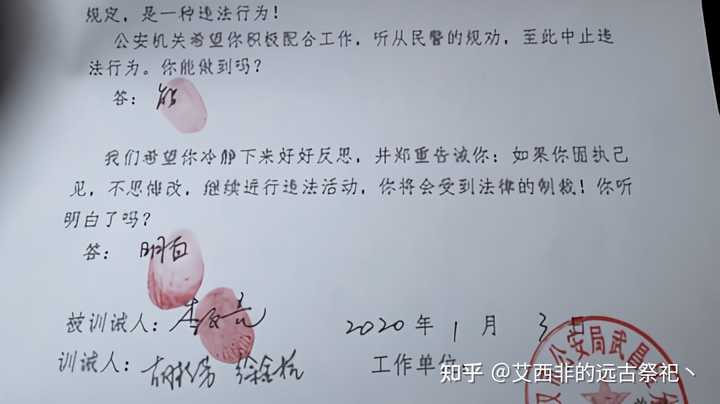 规定，是一种违法行为！
公安机关希望你积极配合工作，听从民警的规劝，至此中止违
法行为。你能做到吗？
答：能
我们希望你冷静下来好好反思，并郑重告诫你：如果你固执己
见，不思悔改，继续进行违法活动，你将会受到法律的制裁！你听
明白了吗？
答：明白
被训诫人：李文亮 2020年1月3日
训诫人： 工作单位
公安局武
知乎 @艾西非的远古祭祀丶